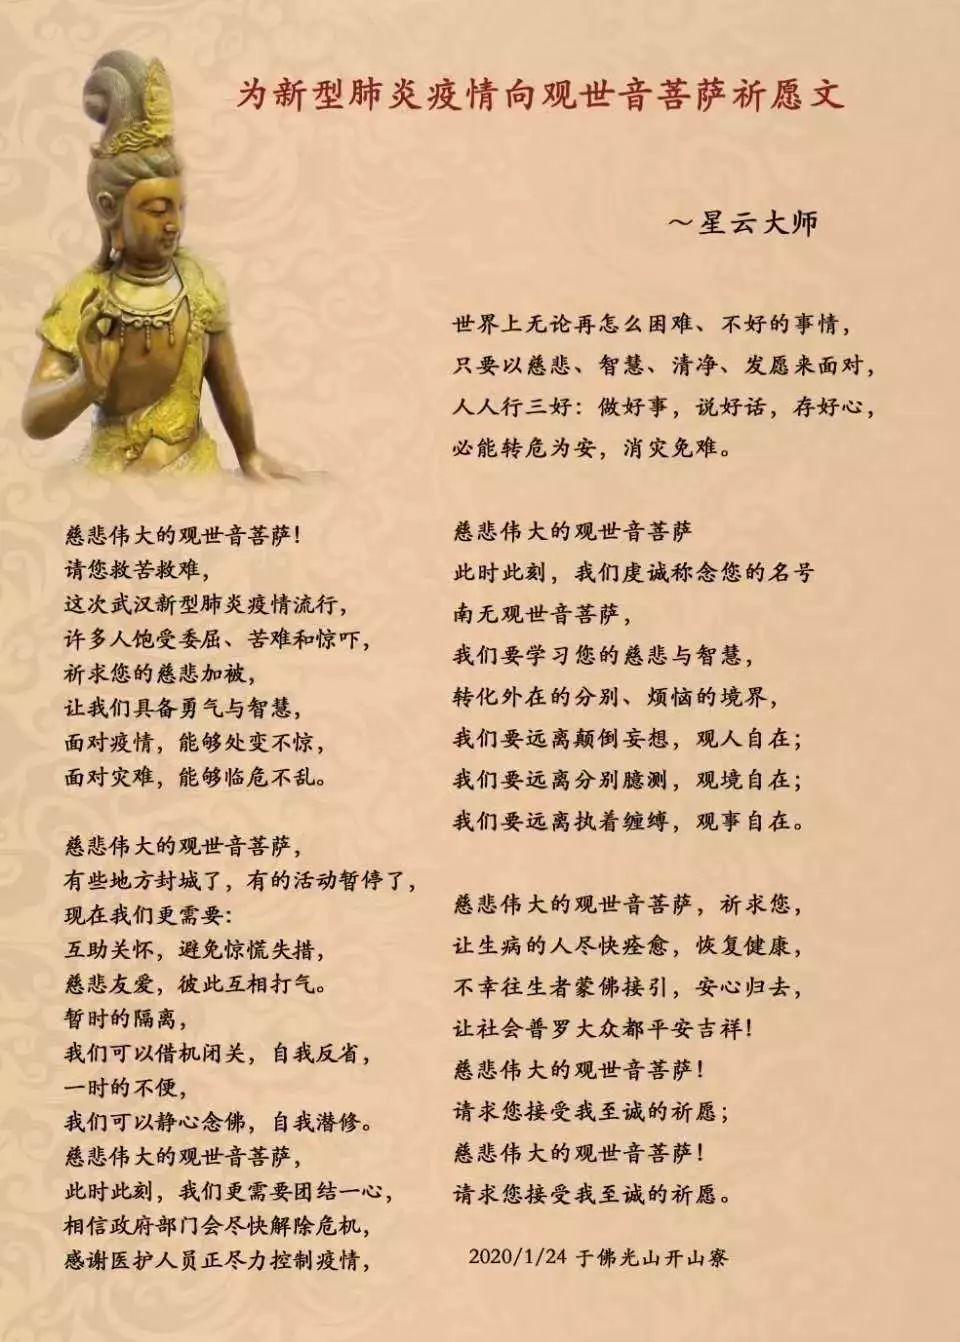 为新型肺炎疫情向观世音菩萨祈愿文
～星云大师
慈悲伟大的观世音菩萨！
请您救苦救难，
这次武汉新型肺炎疫情流行，
许多人饱受委屈、苦难和惊吓，
祈求您的慈悲加被，
让我们具备勇气与智慧，
面对疫情，能够处变不惊，
面对灾难，能够临危不乱。
慈悲伟大的观世音菩萨，
有些地方封城了，有的活动暂停了，
现在我们更需要：
互助关怀，避免惊慌失措，
慈悲友爱，彼此互相打气。
暂时的隔离，
我们可以借机闭关，自我反省，
一时的不便，
我们可以静心念佛，自我潜修。
慈悲伟大的观世音菩萨，
此时此刻，我们更需要团结一心，
相信政府部门会尽快解除危机，
感谢医护人员正尽力控制疫情，
世界上无论再怎么困难、不好的事情，
只要以慈悲、智慧、清净、发愿来面对，
人人行三好：做好事，说好话，存好心，
必能转危为安，消灾免难。
慈悲伟大的观世音菩萨
此时此刻，我们虔诚称念您的名号
南无观世音菩萨，
我们要学习您的慈悲与智慧，
转化外在的分别、烦恼的境界，
我们要远离颠倒妄想，观人自在；
我们要远离分别臆测，观境自在；
我们要远离执着缠缚，观事自在。
慈悲伟大的观世音菩萨，祈求您，
让生病的人尽快痊愈，恢复健康，
不幸往生者蒙佛接引，安心归去，
让社会普罗大众都平安吉祥！
慈悲伟大的观世音菩萨！
请求您接受我至诚的祈愿；
慈悲伟大的观世音菩萨！
请求您接受我至诚的祈愿。
2020/1/24 于佛光山开山寮